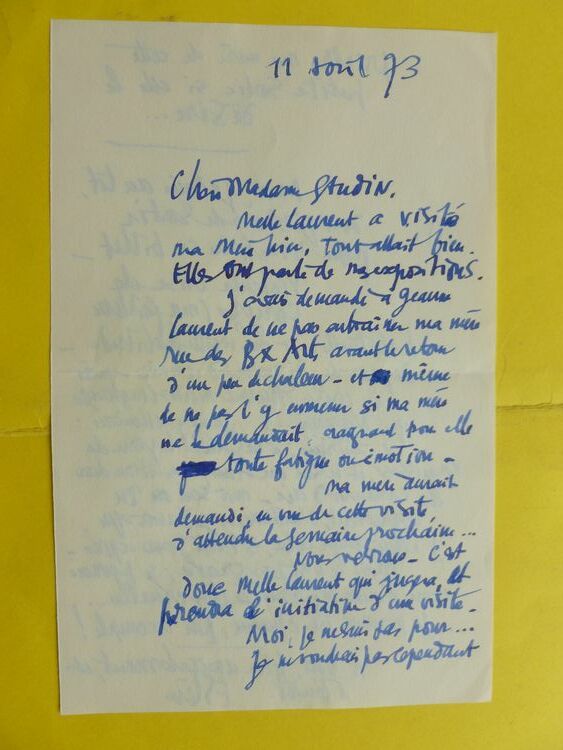 11 avril 73
Chère Madame Studin.
Melle Laurent a visité
ma mère hier, tout allait bien.
Elles ont parlé de nos expositions.
J'avais demandé à Jeanne
Laurent de ne pas entraîner ma mère
rue des Bx Arts, avant le retour
d'un peu de chaleur - et même
de ne pas l'y emmener si ma mère
ne le demandait, craignant pour elle
toute fatigue ou émotion -
ma mère aurait
demandé, en vue de cette visite
d'attendre la semaine prochaine...
Nous verrons - C'est
donc Melle Laurent qui jugera, et
prendra l'initiative d'une visite.
Moi, je ne suis pas pour...
Je ne voudrais pas cependant